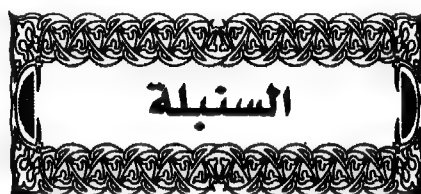 السنبلة